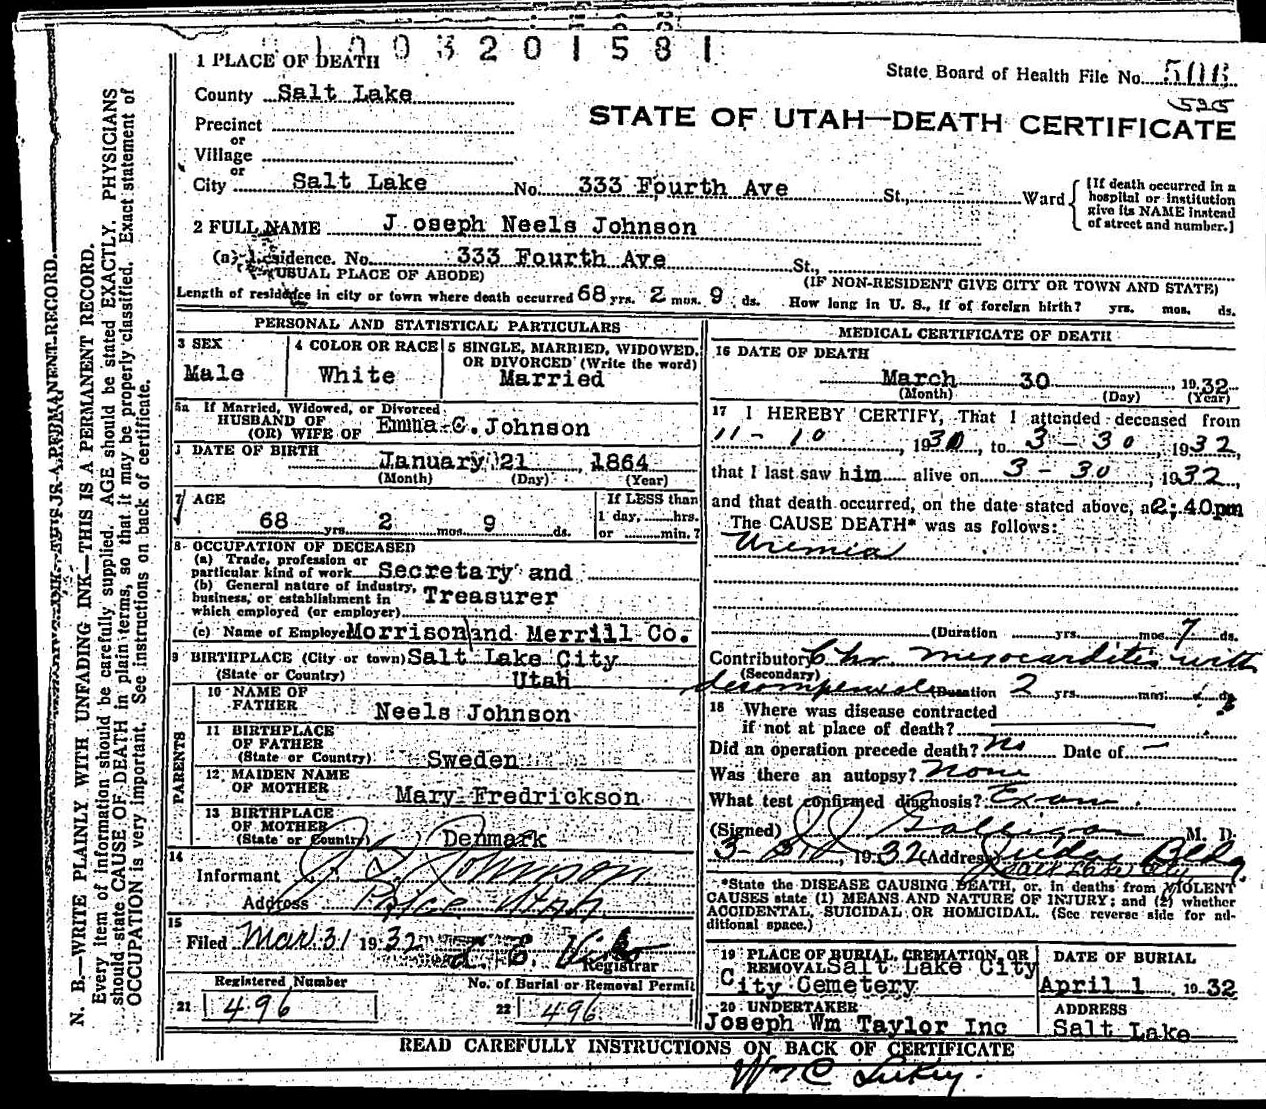 1003201581
1 PLACE OF DEATH
State Board of Health File No. 506
525
County Salt Lake
STATE OF UTAH—DEATH CERTIFICATE
Precinct
or
Village
or
City Salt Lake No. 333 Fourth Ave St., Ward
[If death occurred in a hospital or institution give its NAME instead of street and number.]
2 FULL NAME J oseph Neels Johnson
(a) Residence. No. 333 Fourth Ave St.,
(USUAL PLACE OF ABODE) (IF NON-RESIDENT GIVE CITY OR TOWN AND STATE)
Length of residence in city or town where death occurred 68 yrs. 2 mos. 9 ds. How long in U. S., if of foreign birth? yrs. mos. ds.
PERSONAL AND STATISTICAL PARTICULARS
3 SEX 4 COLOR OR RACE 5 SINGLE, MARRIED, WIDOWED,
OR DIVORCED (Write the word)
Male White Married
5a If Married, Widowed, or Divorced
HUSBAND OF
(OR) WIFE OF Emma C. Johnson
DATE OF BIRTH
January 21 , 1864
(Month) (Day) (Year)
7 AGE If LESS than
1 day, hrs.
68 yrs. 2 mos 9 ds. or min. ?
8 OCCUPATION OF DECEASED
(a) Trade, profession or
particular kind of work Secretary and
(b) General nature of industry,
business, or establishment in Treasurer
which employed (or employer)
(c) Name of Employer Morrison and Merrill Co.
9 BIRTHPLACE (City or town) Salt Lake City
(State or Country) Utah
PARENTS
10 NAME OF
FATHER Neels Johnson
11 BIRTHPLACE
OF FATHER
(State or Country) Sweden
12 MAIDEN NAME
OF MOTHER Mary Fredrickson
13 BIRTHPLACE
OF MOTHER
(State or Country) Denmark
14
Informant Johnson
Address Price Utah
15
Filed Mar 31 1932 L. E.
Registrar
Registered Number No. of Burial or Removal Permit
21 496 22 496
MEDICAL CERTIFICATE OF DEATH
16 DATE OF DEATH
March 30 , 1932
(Month) (Day) (Year)
17 I HEREBY CERTIFY, That I attended deceased from
11-10, 1931, to 3-30, 1932,
that I last saw him alive on 3-30, 1932,
and that death occurred, on the date stated above, a 2;40pm
The CAUSE DEATH* was as follows:
Uremia
(Duration yrs. mos. 7 ds.
Contributory Chr. myocarditis with
(Secondary)
decompensation Duration 2 yrs. mos. ds.
18 Where was disease contracted
if not at place of death?
Did an operation precede death? No Date of —
Was there an autopsy? None
What test confirmed diagnosis? Exam.
(Signed) J J Galligan M. D.
3-31, 1932 (Address) Judge Bldg
Salt Lake City
*State the DISEASE CAUSING DEATH, or, in deaths from VIOLENT
CAUSES state (1) MEANS AND NATURE OF INJURY; and (2) whether
ACCIDENTAL, SUICIDAL OR HOMICIDAL. (See reverse side for ad-
ditional space.)
19 PLACE OF BURIAL, CREMATION, OR DATE OF BURIAL
REMOVAL Salt Lake City
City Cemetery April 1 1932
20 UNDERTAKER ADDRESS
Joseph Wm Taylor Inc Salt Lake
READ CAREFULLY INSTRUCTIONS ON BACK OF CERTIFICATE
N. B.—WRITE PLAINLY WITH UNFADING INK—THIS IS A PERMANENT RECORD.
Every item of information should be carefully supplied. AGE should be stated EXACTLY. PHYSICIANS
should state CAUSE OF DEATH in plain terms, so that it may be properly classified. Exact statement of
OCCUPATION is very important. See instructions on back of certificate.